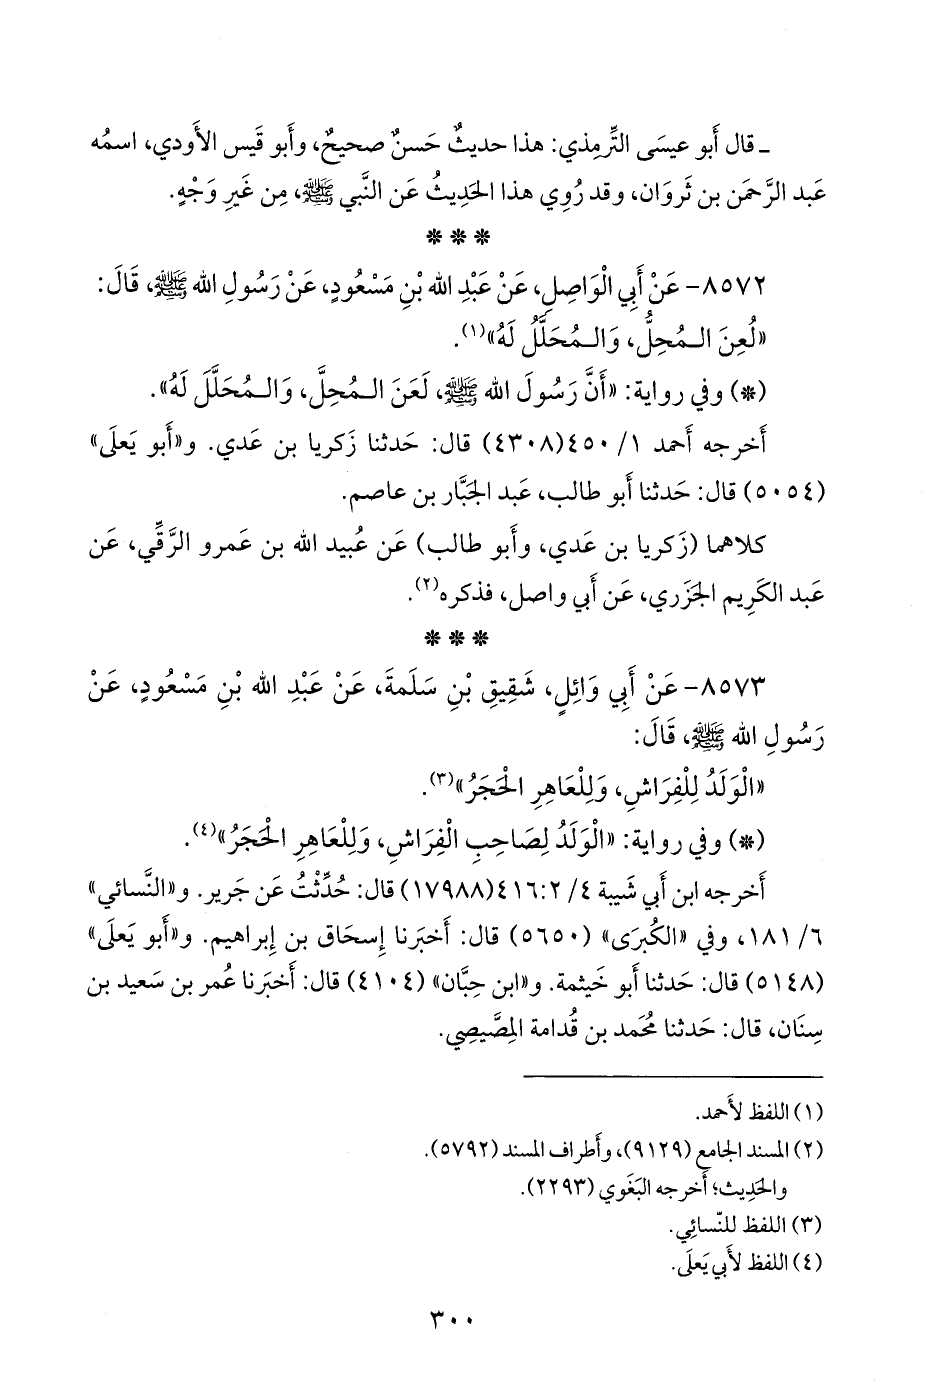 ـ قال أَبو عيسَى التِّرمِذي: هذا حديثٌ حَسنٌ صحيحٌ، وأَبو قَيس الأَودي، اسمُه
عَبد الرَّحمَن بن ثَروان، وقد رُوِي هذا الحَدِيثُ عَن النَّبي ﷺ، مِن غَيرِ وَجْهٍ.
* * *
٨٥٧٢- عَنْ أَبِي الْوَاصِلِ، عَنْ عَبْدِ الله بْنِ مَسْعُودٍ، عَنْ رَسُولِ الله ﷺ، قَالَ:
«لُعِنَ الـمُحِلُّ، وَالـمُحَلَّلُ لَهُ»(١).
(*) وفي رواية: «أَنَّ رَسُولَ الله ﷺ، لَعَنَ الـمُحِلَّ، وَالـمُحَلَّلَ لَهُ».
أَخرجه أَحمد ١/ ٤٥٠(٤٣٠٨) قال: حَدثنا زَكريا بن عَدي. و«أَبو يَعلَى»
(٥٠٥٤) قال: حَدثنا أَبو طالب، عَبد الجَبَّار بن عاصم.
كلاهما (زَكريا بن عَدي، وأَبو طالب) عَن عُبيد الله بن عَمرو الرَّقِّي، عَن
عَبد الكَرِيم الجَزَري، عَن أَبي واصل، فذكره(٢).
* * *
٨٥٧٣- عَنْ أَبِي وَائِلٍ، شَقِيقِ بْنِ سَلَمةَ، عَنْ عَبْدِ الله بْنِ مَسْعُودٍ، عَنْ
رَسُولِ الله ﷺ، قَالَ:
«الْوَلَدُ لِلْفِرَاشِ، وَلِلْعَاهِرِ الْحَجَرُ»(٣).
(*) وفي رواية: «الْوَلَدُ لِصَاحِبِ الْفِرَاشِ، وَلِلْعَاهِرِ الْحَجَرُ»(٤).
أَخرجه ابن أَبي شَيبة ٤/ ٤١٦:٢(١٧٩٨٨) قال: حُدِّثْتُ عَن جَرير. و«النَّسائي»
٦/ ١٨١، وفي «الكُبرَى» (٥٦٥٠) قال: أَخبَرنا إِسحَاق بن إِبراهيم. و«أَبو يَعلَى»
(٥١٤٨) قال: حَدثنا أَبو خَيثمة. و«ابن حِبَّان» (٤١٠٤) قال: أَخبَرنا عُمر بن سَعيد بن
سِنَان، قال: حَدثنا مُحَمد بن قُدامة المِصِّيصِي.
(١) اللفظ لأَحمد.
(٢) المسند الجامع (٩١٢٩)، وأَطراف المسند (٥٧٩٢).
والحَدِيث؛ أَخرجه البَغَوي (٢٢٩٣).
(٣) اللفظ للنَّسائي.
(٤) اللفظ لأَبي يَعلَى.
٣٠٠